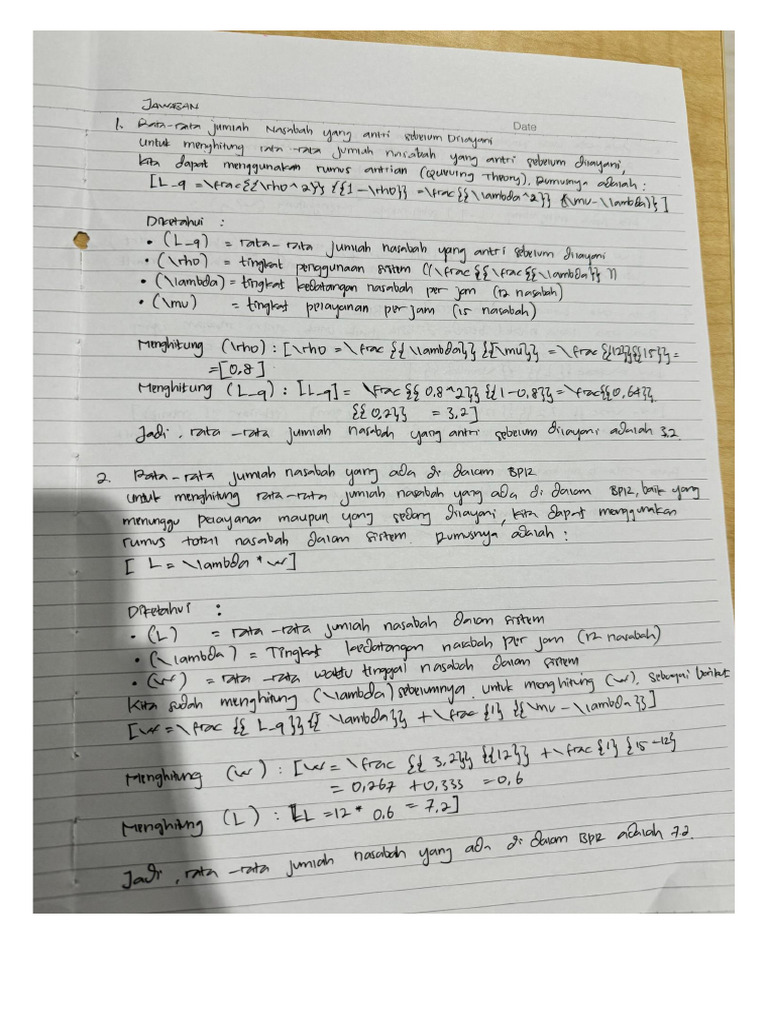 JAWABAN
Date
1. Rata-rata jumlah Nasabah yang antri sebelum Dilayani
untuk menghitung rata-rata jumlah nasabah yang antri sebelum dilayani,
kita dapat menggunakan rumus antrian (Queuing Theory). Rumusnya adalah:
[L_q =\frac{{\rho^2}} {{1-\rho}} =\frac{{\lambda^2}} {\mu-\lambda)}]
Diketahui :
• (L_q) = rata-rata jumlah nasabah yang antri sebelum dilayani
• (\rho) = tingkat penggunaan sistem ((\frac{{\frac{{\lambda}} ))
• (\lambda) = tingkat kedatangan nasabah per jam (12 nasabah)
• (\mu) = tingkat pelayanan per jam (15 nasabah)
Menghitung (\rho) : [\rho =\frac {{\lambda}} {{\mu}} =\frac {{12}}{{15}} =
=[0,8]
Menghitung (L_q) : [L_q] = \frac{{0,8^2}} {{1-0,8}} =\frac{{0,64}}
{{0,2}} = 3,2]
Jadi, rata-rata jumlah nasabah yang antri sebelum dilayani adalah 3,2
2. Rata-rata jumlah nasabah yang ada di dalam BPR
untuk menghitung rata-rata jumlah nasabah yang ada di dalam BPR, baik yang
menunggu pelayanan maupun yang sedang dilayani, kita dapat menggunakan
rumus total nasabah dalam sistem. Rumusnya adalah :
[ L = \lambda * w]
Diketahui :
• (L) = rata-rata jumlah nasabah dalam sistem
• (\lambda) = Tingkat kedatangan nasabah per jam (12 nasabah)
• (w) = rata-rata waktu tinggal nasabah dalam sistem
Kita sudah menghitung (\lambda) sebelumnya. untuk menghitung (w), sebagai berikut
[w =\frac {{ L_q}} {{ \lambda}} + \frac {1} {{\mu - \lambda}}]
Menghitung (w) : [w = \frac {{ 3,2}} {{12}} + \frac {1} {15-12}
= 0,267 + 0,333 = 0,6
Menghitung (L) : [L = 12 * 0,6 = 7,2]
Jadi, rata-rata jumlah nasabah yang ada di dalam BPR adalah 7.2.